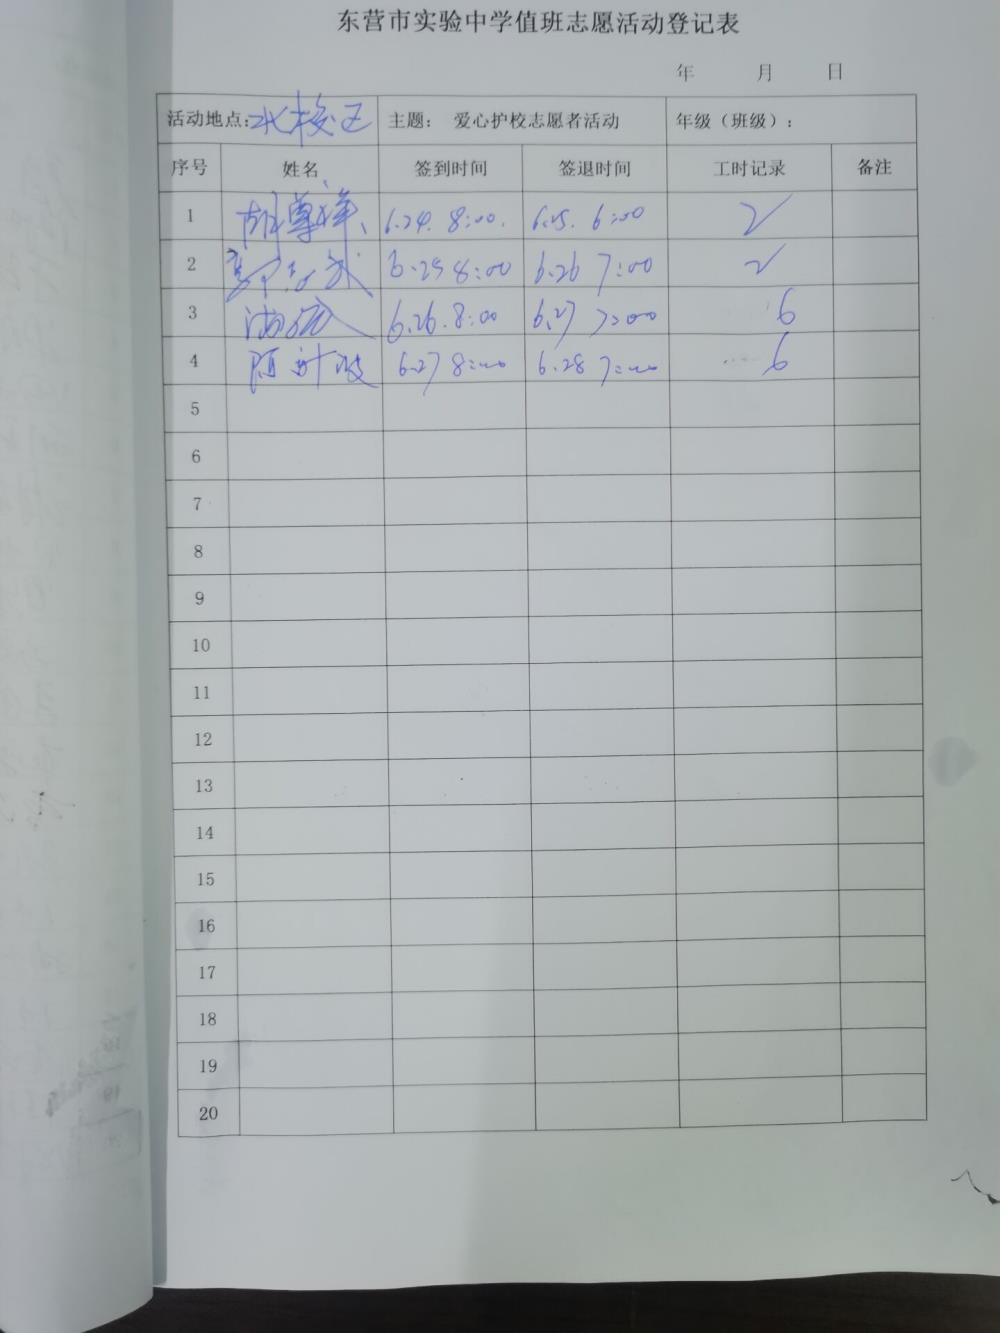 东营市实验中学值班志愿活动登记表
年 月 日
活动地点:北校区 主题: 爱心护校志愿者活动 年级（班级）:
序号 姓名 签到时间 签退时间 工时记录 备注
1 胡尊祥 6.24. 8:00. 6.25. 6:00 2
2 6.25 8:00 6.26 7:00 2
3 6.26. 8:00 6.27 7:00 6
4 6.27 8:00 6.28 7:00 6
5
6
7
8
9
10
11
12
13
14
15
16
17
18
19
20